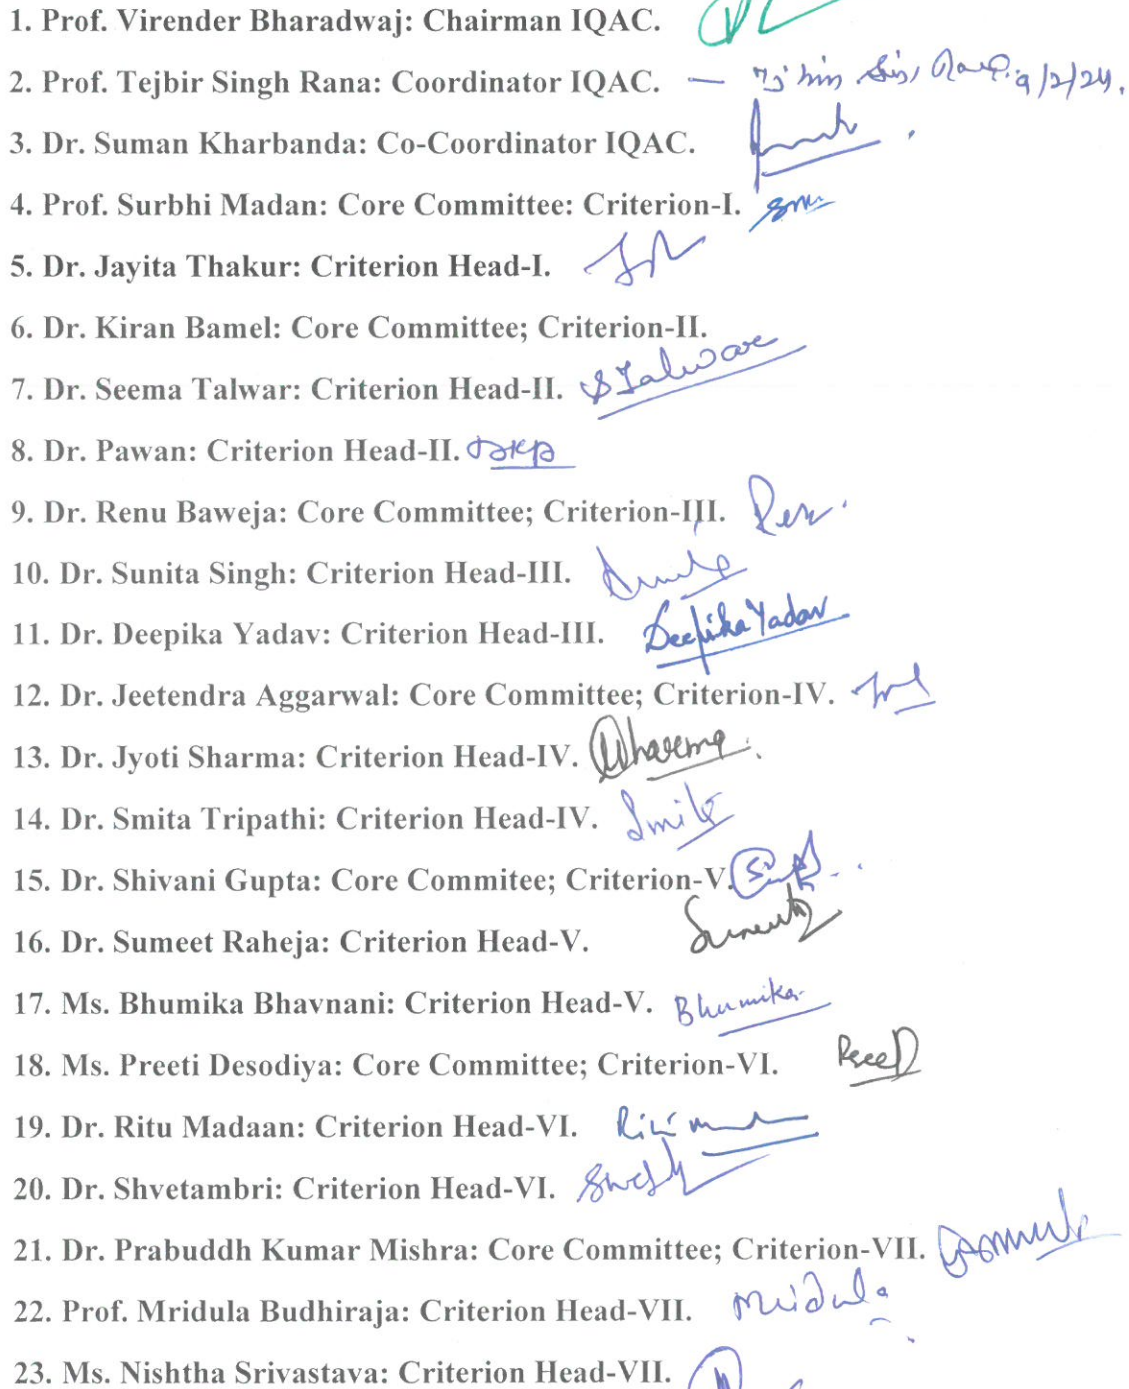 1. Prof. Virender Bharadwaj: Chairman IQAC.
2. Prof. Tejbir Singh Rana: Coordinator IQAC. — 9/2/24.
3. Dr. Suman Kharbanda: Co-Coordinator IQAC.
4. Prof. Surbhi Madan: Core Committee: Criterion-I.
5. Dr. Jayita Thakur: Criterion Head-I.
6. Dr. Kiran Bamel: Core Committee; Criterion-II.
7. Dr. Seema Talwar: Criterion Head-II. STalwar
8. Dr. Pawan: Criterion Head-II.
9. Dr. Renu Baweja: Core Committee; Criterion-III.
10. Dr. Sunita Singh: Criterion Head-III.
11. Dr. Deepika Yadav: Criterion Head-III. Deepika Yadav
12. Dr. Jeetendra Aggarwal: Core Committee; Criterion-IV.
13. Dr. Jyoti Sharma: Criterion Head-IV.
14. Dr. Smita Tripathi: Criterion Head-IV.
15. Dr. Shivani Gupta: Core Commitee; Criterion-V.
16. Dr. Sumeet Raheja: Criterion Head-V.
17. Ms. Bhumika Bhavnani: Criterion Head-V. Bhumika
18. Ms. Preeti Desodiya: Core Committee; Criterion-VI.
19. Dr. Ritu Madaan: Criterion Head-VI.
20. Dr. Shvetambri: Criterion Head-VI.
21. Dr. Prabuddh Kumar Mishra: Core Committee; Criterion-VII.
22. Prof. Mridula Budhiraja: Criterion Head-VII. Mridula
23. Ms. Nishtha Srivastava: Criterion Head-VII.